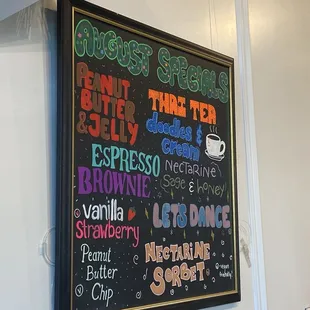 AUGUST SPECIALS
PEANUT
BUTTER
& JELLY
THAI TEA
doodles &
cream
ESPRESSO
BROWNIE
nectarine
sage & honey
vanilla
strawberry
LETS DANCE
Peanut
Butter
Chip
NECTARINE
SORBET